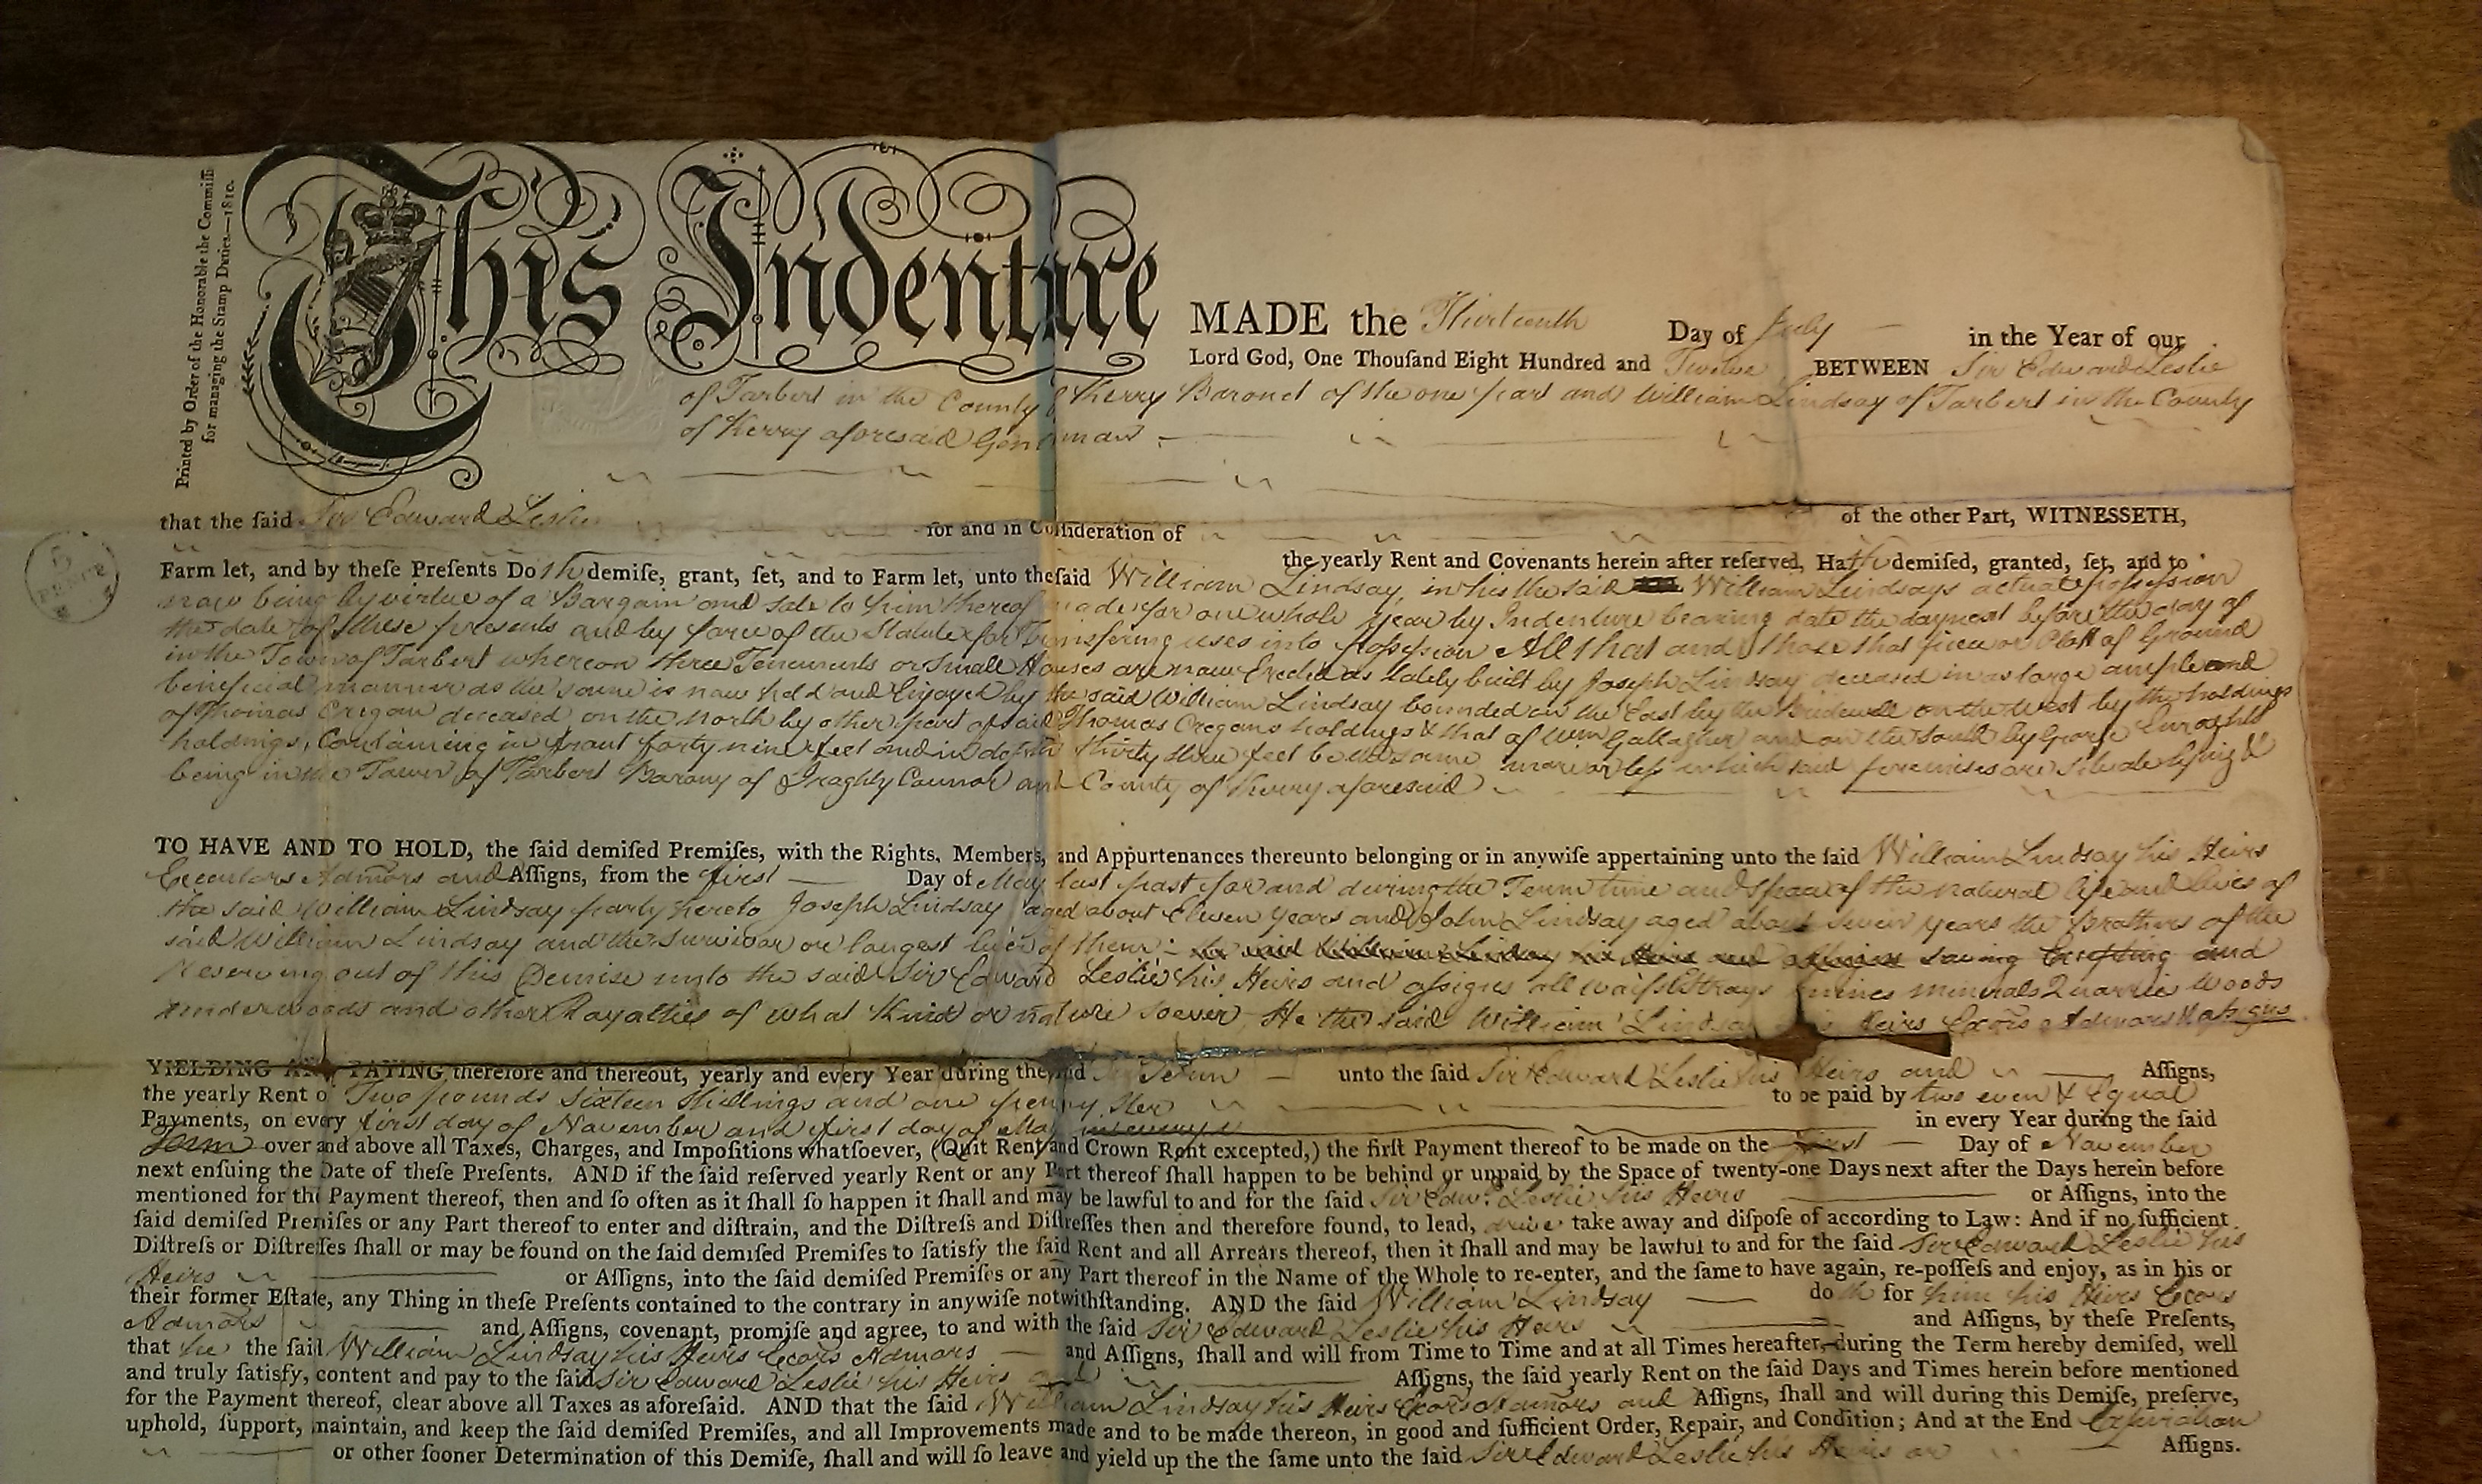 Printed by Order of the Honorable the Commiſſ
for managing the Stamp Duties.—1810.
This Indenture
MADE the Thirteenth Day of July in the Year of our
Lord God, One Thouſand Eight Hundred and Twelve BETWEEN Sir Edward Leslie
of Tarbert in the County of Kerry Baronet of the one part and William Lindsay of Tarbert in the County
of Kerry aforesaid Gentleman
of the other Part, WITNESSETH,
that the ſaid Sir Edward Leslie for and in Conſideration of
the yearly Rent and Covenants herein after reſerved, Hath demiſed, granted, ſet, and to
Farm let, and by theſe Preſents Doth demiſe, grant, ſet, and to Farm let, unto the ſaid William Lindsay, in his the said William Lindsays actual possession
now being by virtue of a Bargain and sale to him thereof made for one whole year by Indenture bearing date the day next before the day of
the date of these presents and by force of the Statute for Transfering uses into possession All that and those that piece or Plott of Ground
in the Town of Tarbert whereon three Tenements or Small Houses are now Erected as lately built by Joseph Lindsay deceased in as large ample and
beneficial manner as the same is now held and Enjoyed by the said William Lindsay bounded on the East by the Bridewell on the West by the holdings
of Thomas Cregan deceased on the North by other part of said Thomas Cregans holdings & that of Wm Gallagher and on the South by George
holdings, Containing in front forty nine feet and in depth thirty three feet be the same more or less which said premises are lying &
being in the Town of Tarbert Barony of Iraghty Connor and County of Kerry aforesaid
TO HAVE AND TO HOLD, the ſaid demiſed Premiſes, with the Rights, Members, and Appurtenances thereunto belonging or in anywiſe appertaining unto the ſaid William Lindsay his Heirs
Executors Admors and Aſſigns, from the first Day of May last past for and during the Term time and Space of the natural life and lives of
the said William Lindsay party hereto Joseph Lindsay aged about Eleven years and John Lindsay aged about seven years the Brothers of the
said William Lindsay and the Survivor or longest liver of them the said William Lindsay his Heirs and assigns saving Excepting and
Reserving out of this Demise unto the said Sir Edward Leslie his Heirs and assigns all waifs Estrays mines minerals Quarries Woods
underwoods and other Royalties of what kind or nature soever He the said William Lindsay his Heirs Exors Admors & assigns
YIELDING AND PAYING therefore and thereout, yearly and every Year during the ſaid Term unto the ſaid Sir Edward Leslie his Heirs and Aſſigns,
the yearly Rent o Two pounds Sixteen Shillings and one penny Ster to be paid by two even & Equal
Payments, on every first day of November and first day of May in every Year during the ſaid
Term over and above all Taxes, Charges, and Impoſitions whatſoever, (Quit Rent and Crown Rent excepted,) the firſt Payment thereof to be made on the first Day of November
next enſuing the Date of theſe Preſents. AND if the ſaid reſerved yearly Rent or any Part thereof ſhall happen to be behind or unpaid by the Space of twenty-one Days next after the Days herein before
mentioned for the Payment thereof, then and ſo often as it ſhall ſo happen it ſhall and may be lawful to and for the ſaid Sir Edwd. Leslie his Heirs or Aſſigns, into the
ſaid demiſed Premiſes or any Part thereof to enter and diſtrain, and the Diſtreſs and Diſtreſſes then and therefore found, to lead, drive take away and diſpoſe of according to Law: And if no ſufficient
Diſtreſs or Diſtreſſes ſhall or may be found on the ſaid demiſed Premiſes to ſatisfy the ſaid Rent and all Arrears thereof, then it ſhall and may be lawful to and for the ſaid Sir Edward Leslie his
Heirs or Aſſigns, into the ſaid demiſed Premiſes or any Part thereof in the Name of the Whole to re-enter, and the ſame to have again, re-poſſeſs and enjoy, as in his or
their former Eſtate, any Thing in theſe Preſents contained to the contrary in anywiſe notwithſtanding. AND the ſaid William Lindsay doth for him his Heirs Exors
Admors and Aſſigns, covenant, promiſe and agree, to and with the ſaid Sir Edward Leslie his Heirs and Aſſigns, by theſe Preſents,
that he the ſaid William Lindsay his Heirs Exors Admors and Aſſigns, ſhall and will from Time to Time and at all Times hereafter, during the Term hereby demiſed, well
and truly ſatisfy, content and pay to the ſaid Sir Edward Leslie his Heirs and Aſſigns, the ſaid yearly Rent on the ſaid Days and Times herein before mentioned
for the Payment thereof, clear above all Taxes as aforeſaid. AND that the ſaid William Lindsay his Heirs Exors Admors and Aſſigns, ſhall and will during this Demiſe, preſerve,
uphold, ſupport, maintain, and keep the ſaid demiſed Premiſes, and all Improvements made and to be made thereon, in good and ſufficient Order, Repair, and Condition; And at the End Expiration
or other ſooner Determination of this Demiſe, ſhall and will ſo leave and yield up the the ſame unto the ſaid Sir Edward Leslie his Heirs or Aſſigns.